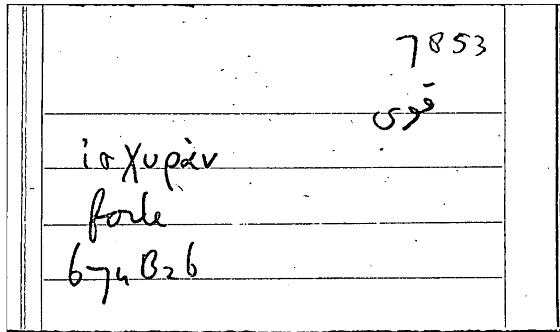 7853
ἰσχυρὰν
forte
674 B26